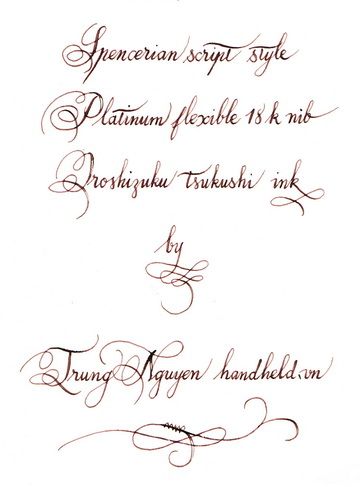 Spencerian script style
Platinum flexible 18 k nib
Iroshizuku tsukushi ink
by
Trung Nguyen handheld.vn